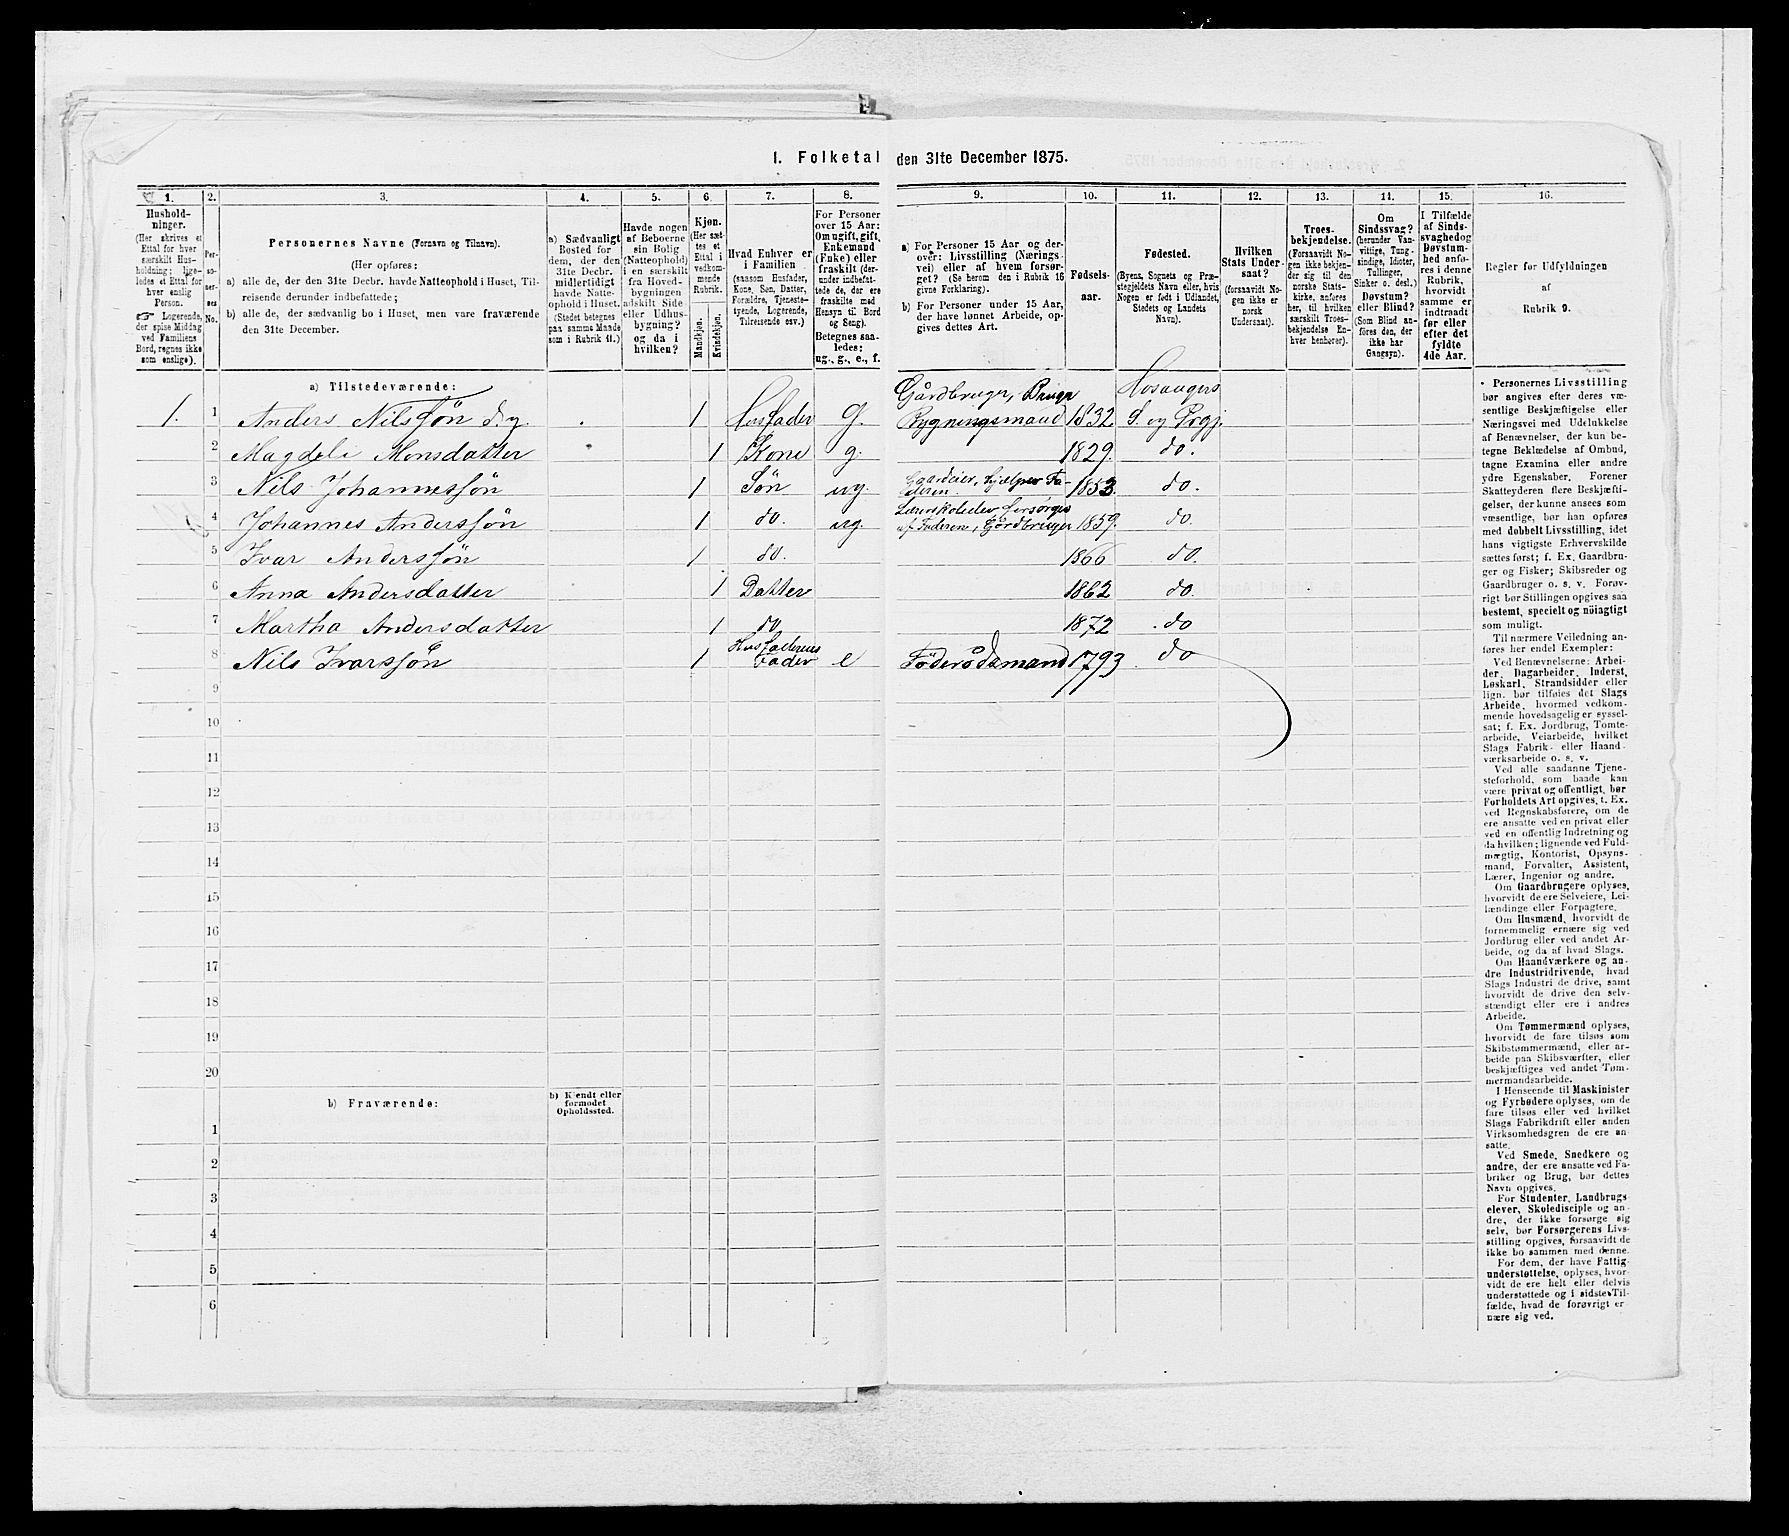 1. Folketal den 31te December 1875.
1.
2.
3.
4.
5.
6.
7.
8.
9.
10.
11.
12.
13.
14.
15.
16.
Hushold-
ninger.
(Her skrives et
Ettal for hver
særskilt Hus-
holdning; lige-
ledes et Ettal for
hver enslig
Person.
☞ Logerende,
der spise Middag
ved Familiens
Bord, regnes ikke
som enslige).
Per-
so-
ner-
nes
No.
Personernes Navne (Fornavn og Tilnavn).
(Her opføres:
a) alle de, der den 31te Decbr. havde Natteophold i Huset, Til-
reisende derunder indbefattede;
b) alle de, der sædvanlig bo i Huset, men vare fraværende
den 31te December.
a) Sædvanligt
Bosted for
dem, der den
31te Decbr.
midlertidigt
havde Natte-
ophold i Huset.
(Stedet betegnes
paa samme Maade
som i Rubrik 11.)
Havde nogen
af Beboerne
sin Bolig
(Natteophold)
i en særskilt
fra Hoved-
bygningen
adskilt Side
eller Udhus-
bygning?
og da i
hvilken?
Kjøn.
(Her sæt-
tes et
Ettal i
vedkom-
mende
Rubrik.
Mandkjøn.
Kvindekjøn.
Hvad Enhver er
i Familien
(saasom Husfader,
Kone, Søn, Datter,
Forældre, Tjeneste-
tyende, Logerende,
Tilreisende osv.)
For Personer
over 15 Aar:
Om ugift, gift,
Enkemand
(Enke) eller
fraskilt (der-
under indbefat-
tede de, der ere
fraskilte med
Hensyn til Bord
og Seng).
Betegnes saa-
ledes:
ug., g., e., f.
a) For Personer 15 Aar og der-
over: Livsstilling (Nærings-
vei) eller af hvem forsør-
get? (Se herom den i Rubrik 16
givne Forklaring).
b) For Personer under 15 Aar,
der have lønnet Arbeide, op-
gives dettes Art.
Fødsels-
aar.
Fødested.
(Byens, Sognets og Præ-
stegjeldets Navn eller, hvis
Nogen er født i Udlandet,
Stedets og Landets
Navn).
Hvilken
Stats Under-
saat?
(forsaavidt No-
gen ikke er
norsk
Undersaat).
Troes-
bekjendelse.
(Forsaavidt No-
gen ikke bekjen-
der sig til den
norske Stats-
kirke, anføres
her, til hvilken
særskilt Troes-
bekjendelse En-
hver henhører).
Om
Sindssvag?
(herunder Van-
vittige, Tung-
sindige, Idioter,
Tullinger,
Sinker o. desl.)
Døvstum?
eller Blind?
(Som Blind an-
føres den, der
ikke har
Gangsyn).
I Tilfælde
af Sinds-
svaghed og
Døvstum-
hed anfø-
res i denne
Rubrik,
hvorvidt
samme er
indtraadt
før eller
efter det
fyldte
4de Aar.
Regler for Udfyldningen
af
Rubrik 9.
a) Tilstedeværende:
Gårdbruger, Bruger Hosangers
1. 1 Anders Nilssøn d.y. 1 Husfader g. Bygningsmand 1832 S og Prgj.
2 Magdeli Monsdatter 1 Kone g. 1829. do.
3 Nils Johannessøn 1 Søn ug. Gaardeier, hjelper Fa-
deren. 1853. do.
4 Johannes Anderssøn 1 do. ug. forsørges
af Faderen, Gårdbruger 1859. do.
5 Ivar Anderssøn 1 do. 1866 do.
6 Anna Andersdatter 1 Datter 1862 do.
7 Martha Andersdatter 1 do 1872 do
8 Nils Ivarssøn 1 Husfaderens
Fader e Föderådsmand 1793 do
9
10
11
12
13
14
15
16
17
18
19
20
b) Fraværende:
b) Kjendt eller
formodet
Opholdssted.
1
2
3
4
5
6
Personernes Livsstilling
bør angives efter deres væ-
sentlige Beskjæftigelse eller
Næringsvei med Udelukkelse
af Benævnelser, der kun be-
tegne Bekladelse af Ombud,
tagne Examina eller andre
ydre Egenskaber. Forener
Skatteyderen flere Beskjæfti-
gelser, der kunne ansees som
væsentlige, bør han opføres
med dobbelt Livsstilling, idet
hans vigtigste Erhvervskilde
sættes først; f. Ex. Gaardbru-
ger og Fisker; Skibsreder og
Gaardbruger o. s. v. Forøv-
rigt bør Stillingen opgives saa
bestemt, specielt og nöiagtigt
som muligt.
Til nærmere Veiledning an-
føres her endel Exempler:
Ved Benævnelserne: Arbei-
der, Dagarbeider, Inderst,
Løskarl, Strandsidder eller
lign. bør tilføies det Slags
Arbeide, hvormed vedkom-
mende hovedsagelig er syssel-
sat; f. Ex. Jordbrug, Tomte-
arbeide, Veiarbeide, hvilket
Slags Fabrik- eller Haand-
værksarbeide o. s. v.
Ved alle saadanne Tjene-
steforhold, som baade kan
være privat og offentligt, bør
Forholdets Art opgives, t. Ex.
ved Regnskabsførere, om de
ere ansatte ved en privat eller
ved en offentlig Indretning og
da hvilken; lignende ved Fuld-
mægtig, Kontorist, Opsyns-
mand, Forvalter, Assistent,
Lærer, Ingeniør og andre.
Om Gaardbrugere oplyses,
hvorvidt de ere Selveiere, Lei-
lændinge eller Forpagtere.
Om Husmænd, hvorvidt de
fornemmelig ernære sig ved
Jordbrug eller ved andet Ar-
beide, og da af hvad Slags.
Om Haandværkere og an-
dre Industridrivende, hvad
Slags Industri de drive, samt
hvorvidt de drive den selv-
stændigt eller ere i andres
Arbeide.
Om Tømmermænd oplyses,
hvorvidt de fare tilsøs som
Skibstømmermænd, eller ar-
beide paa Skibsværfter, eller
beskjæftiges ved andet Tøm-
mermandsarbeide.
I Henseende til Maskinister
og Fyrbødere oplyses, om de
fare tilsøs eller ved hvilket
Slags Fabrikdrift eller anden
Virksomhedsgren de ere an-
satte.
Ved Smede, Snedkere og
andre, der ere ansatte ved Fa-
briker og Brug, bør dettes
Navn opgives.
For Studenter, Landbrugs-
elever, Skoledisciple og an-
dre, der ikke forsørge sig
selv, bør Forsørgerens Livs-
stilling opgives, forsaavidt de
ikke bo sammen med denne.
For dem, der have Fattig-
understøttelse, oplyses, hvor-
vidt de ere helt eller delvis
understøttede og i sidste Til-
fælde, hvad de forøvrigt er
nære sig ved.